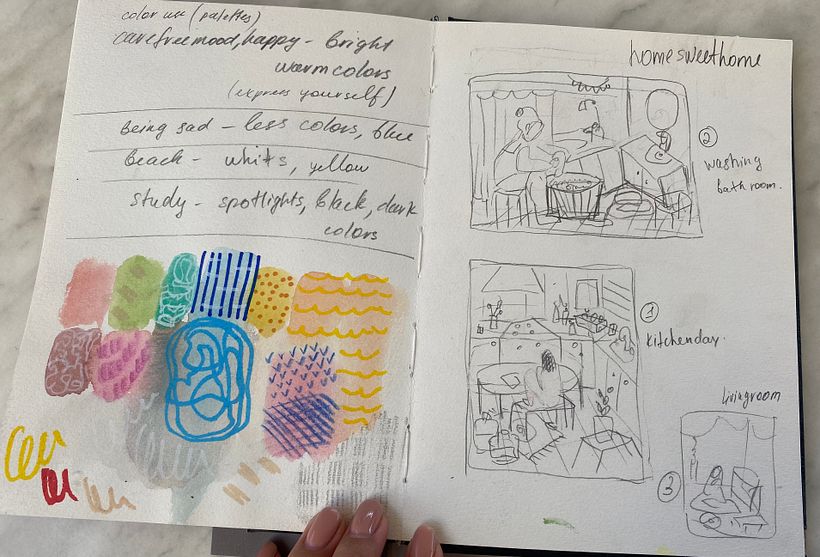 color use (palettes)
carefree mood, happy - bright
warm colors
(express yourself)
being sad - less colors, blue
beach - whits, yellow
study - spotlights, black, dark
colors
home sweet home
②
washing
bathroom.
①
kitchen day.
livingroom
③